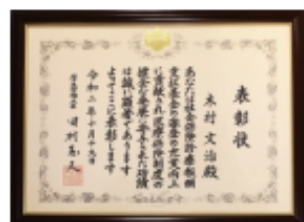 表彰状
木村文治殿
あなたは社会保険診療報酬
支払基金の審査の充実向上
に貢献され医療保険制度の
健全な発展に寄与された功績
は誠に顕著であります
よってここに表彰します
令和二年十月十九日
厚生労働大臣 田村憲久